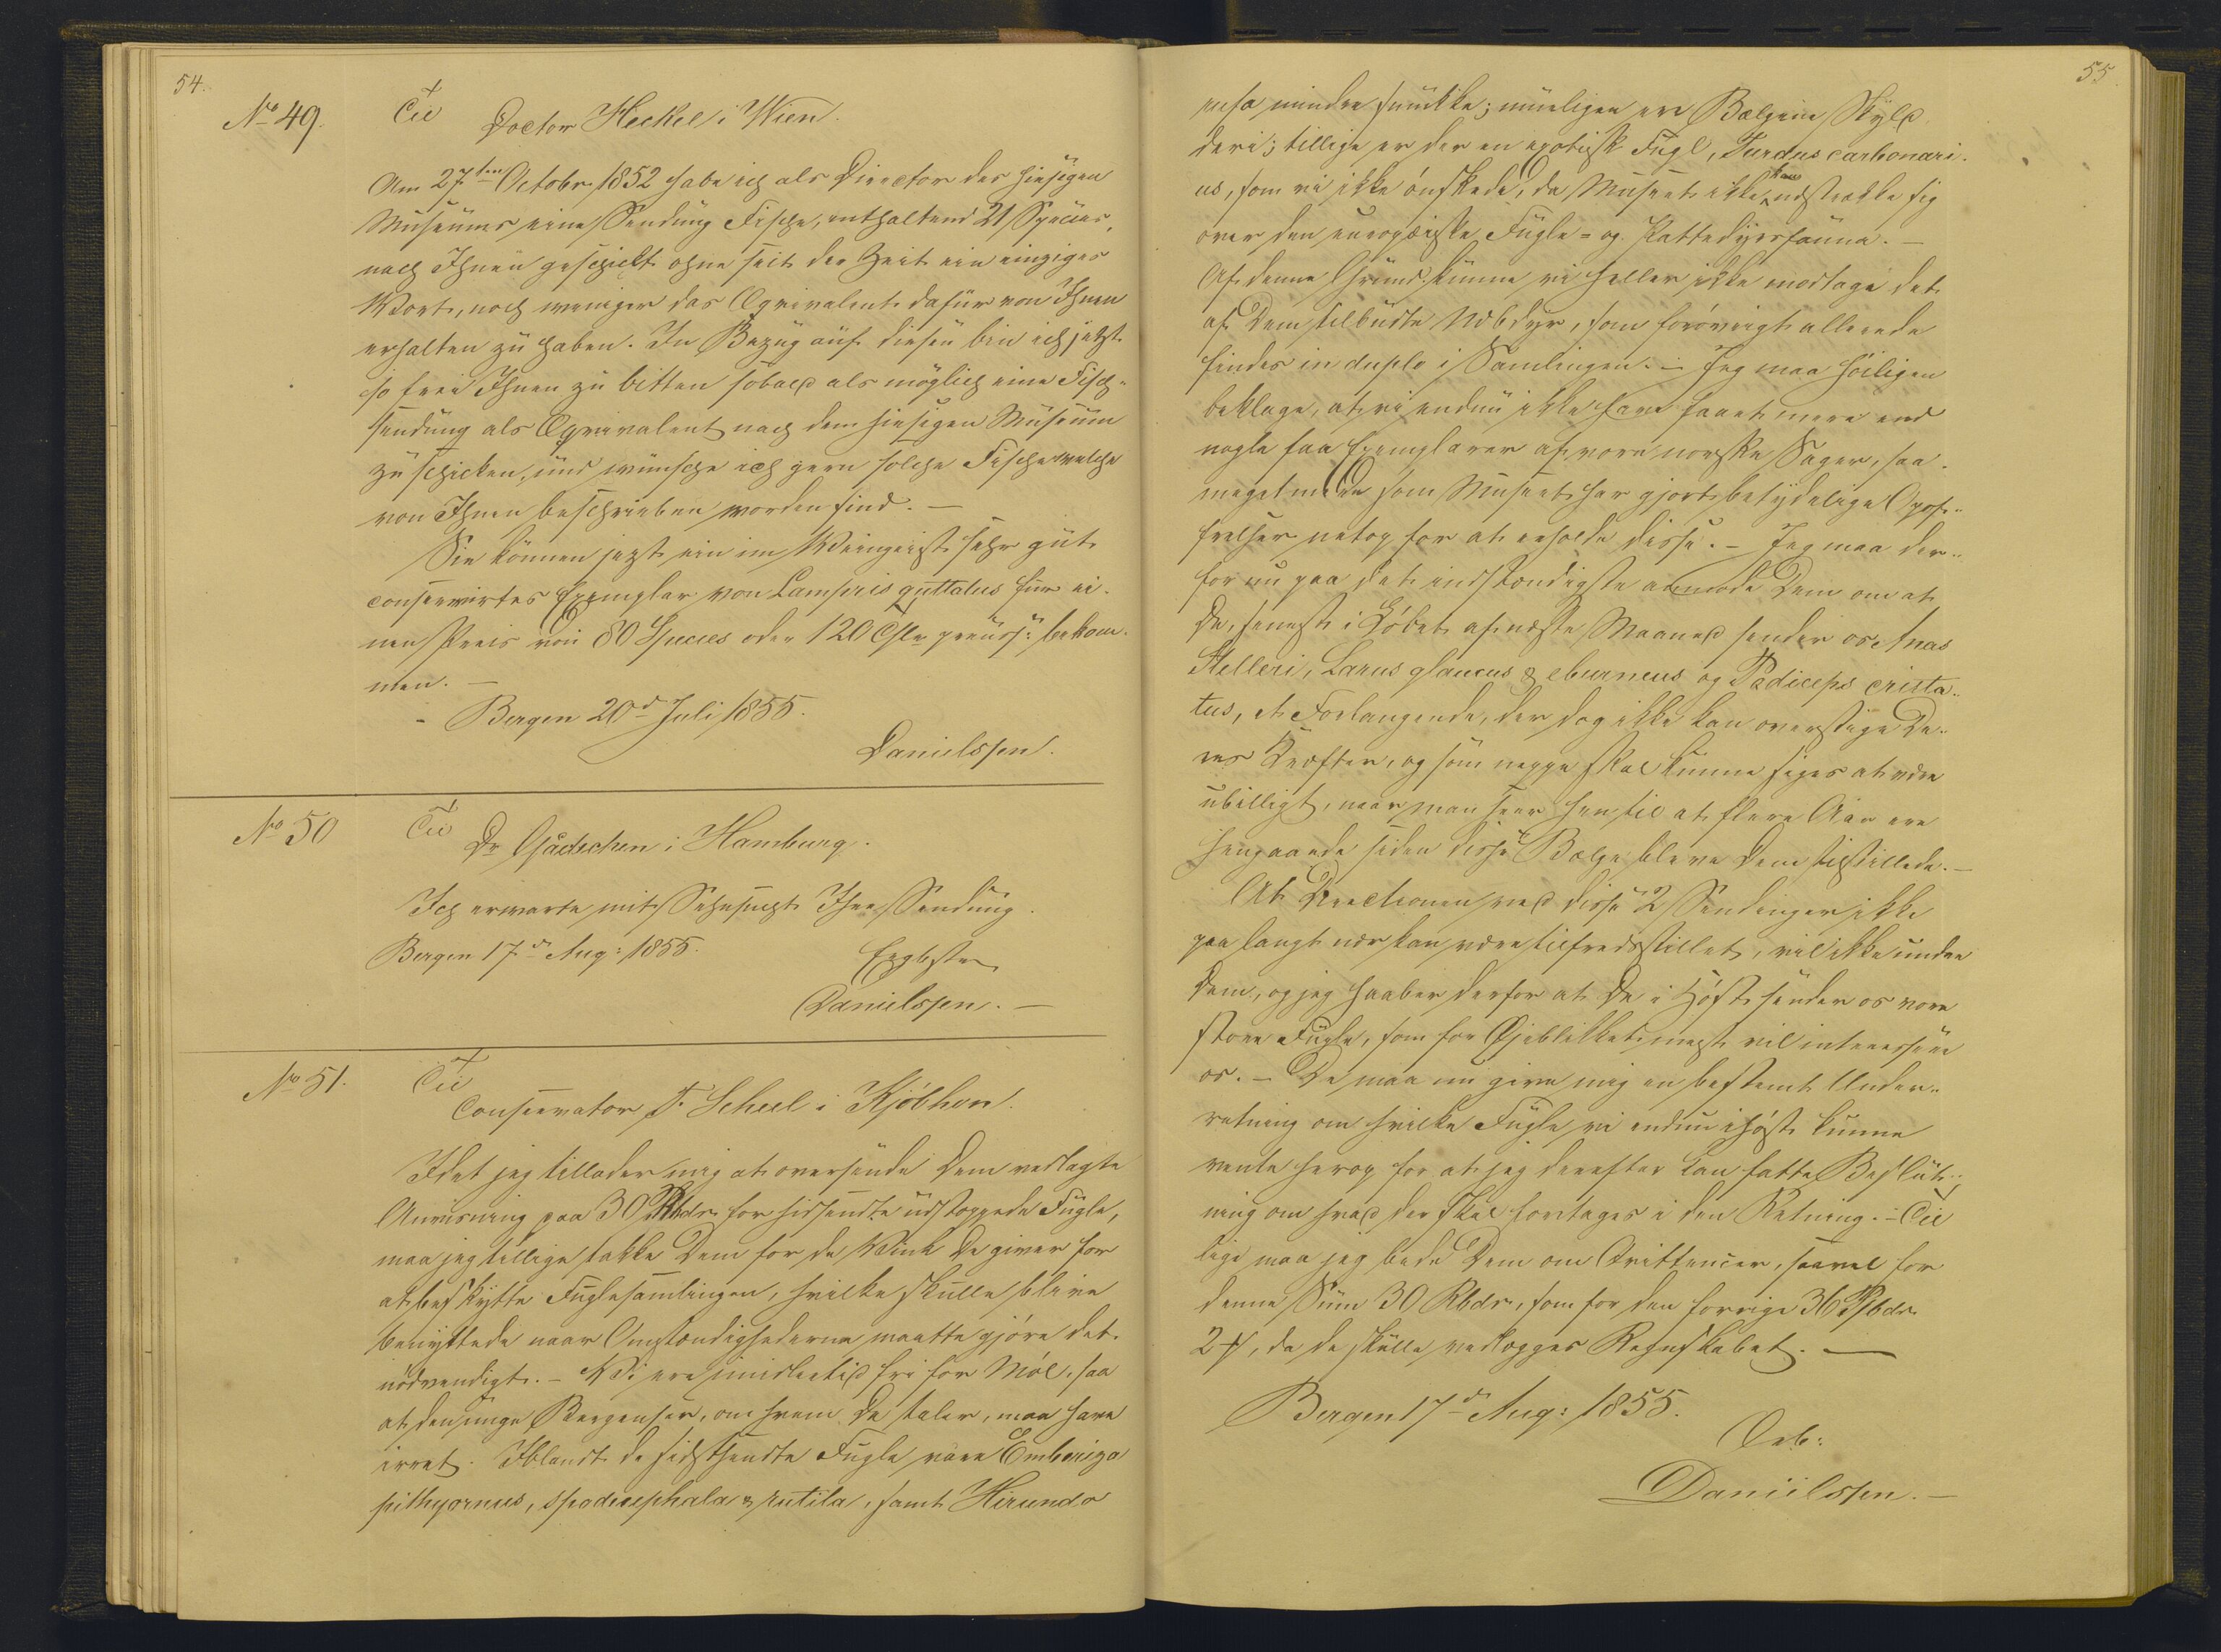 54.
No 49. Til Doctor Heckel i Wien.
Am 27ten Octobr. 1852 habe ich als Director des hiesigen
Museums eine Sendung Fische, enthaltend 21 Species,
nach Ihnen geschickt ohne seit der Zeit ein einziges
Wort, noch weniger das Eqvivalent dafür von Ihnen
erhalten zu haben. In Bezug auf diesen bin ich jetzt
so frei Ihnen zu bitten sobald als möglich eine Fisch-
sendung als Eqvivalent nach dem hiesigen Museum
zu schicken, und wünsche ich gern solche Fische welche
von Ihnen beschrieben worden sind. —
Sie können jezt ein im Weingeist sehr gut
conservirtes Exemplar von Lampris guttatus für ei-
nen Preis von 80 Species oder 120 preuss: bekom-
men. —
Bergen 20d Juli 1855.
Danielssen.
No 50 Til Dr Gädechen i Hamburg.
Ich erwarte mit Sehnsucht Ihre Sendung.
Bergen 17d Aug: 1855.
Ergbstn
Danielssen. —
No 51. Til
Conservator F. Scheel i Kjöbhvn.
Idet jeg tillader mig at oversende Dem vedlagte
Anvisning paa 30 Rbdr. for hidsendte udstoppede Fugle,
maa jeg tillige takke Dem for de Vink De giver for
at beskytte Fuglesamlingen, hvilke skulle blive
benyttede naar Omstændighederne maatte gjöre det
nödvendigt. — Vi ere imidlertid fri for Möl, saa
at den unge Bergenser, om hvem De taler, maa have
irret. Iblandt de sidst sendte Fugle vare Emberiza
pithyornus, spodocephala & rutila, samt Hirundo
55
rufa mindre smukke; mueligen ere Bælgene Skyld
deri; tillige er der en exotisk Fugl, Turdus carbonari-
us, som vi ikke önskede, da Museet ikke kan udstrække sig
over den europæiske Fugle- og Pattedyrsfauna. —
Af denne Grund kunne vi heller ikke modtage det
af Dem tilbudte Næbdyr, som forövrigt allerede
findes in duplo i Samlingen. — Jeg maa höiligen
beklage, at vi endnu ikke have faaet mere end
nogle faa Exemplarer af vore norske Sager, saa
meget mere som Museet har gjort betydelige Opof-
frelser netop for at erholde disse. — Jeg maa der-
for nu paa det indstændigste anmode Dem om at
De, senest i Löbet af næste Maaned sender os Anas
Stelleri, Larus glaucus & eburneus og Podiceps crista-
tus, et Forlangende, der dog ikke kan overstige De-
res Kræfter, og som neppe skal kunne siges at være
ubilligt, naar man seer hen til at flere Aar ere
hengaaede siden disse Bælge bleve Dem tilstillede. —
At Directionen med disse 2 Sendinger ikke
paa langt nær kan være tilfredsstillet, vil ikke undre
Dem, og jeg haaber derfor at De i Höst sender os vore
store Fugle, som for Öjeblikket mest vil interessere
os. — De maa nu give mig en bestemt Under-
retning om hvilke Fugle vi endnu i höst kunne
vente herop for at jeg derefter kan fatte Beslut-
ning om hvad der skal foretages i den Retning. — Til
lige maa jeg bede Dem om Qvittencer, saavel for
denne Sum 30 Rbdr., som for den forrige 36 Rbdr.
2 ꝟ, da de skulle vedlægges Regnskabet. —
Bergen 17d Aug: 1855.
Deb:
Danielssen. —